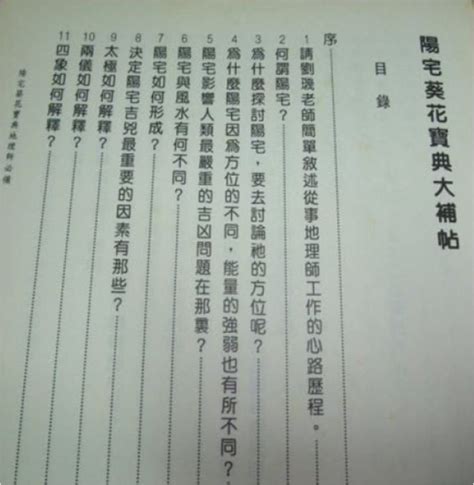 陽宅葵花寶典大補帖
目錄
序
1 請劉璣老師簡單敘述從事地理師工作的心路歷程。
2 何謂陽宅?
3 為什麼探討陽宅,要去討論祂的方位呢?
4 為什麼陽宅因為方位的不同,能量的強弱也有所不同?
5 陽宅影響人類最嚴重的吉凶問題在那裏?
6 陽宅與風水有何不同?
7 陽宅如何形成?
8 決定陽宅吉兇最重要的因素有那些?
9 太極如何解釋?
10 兩儀如何解釋?
11 四象如何解釋?
陽宅葵花寶典地理師必備